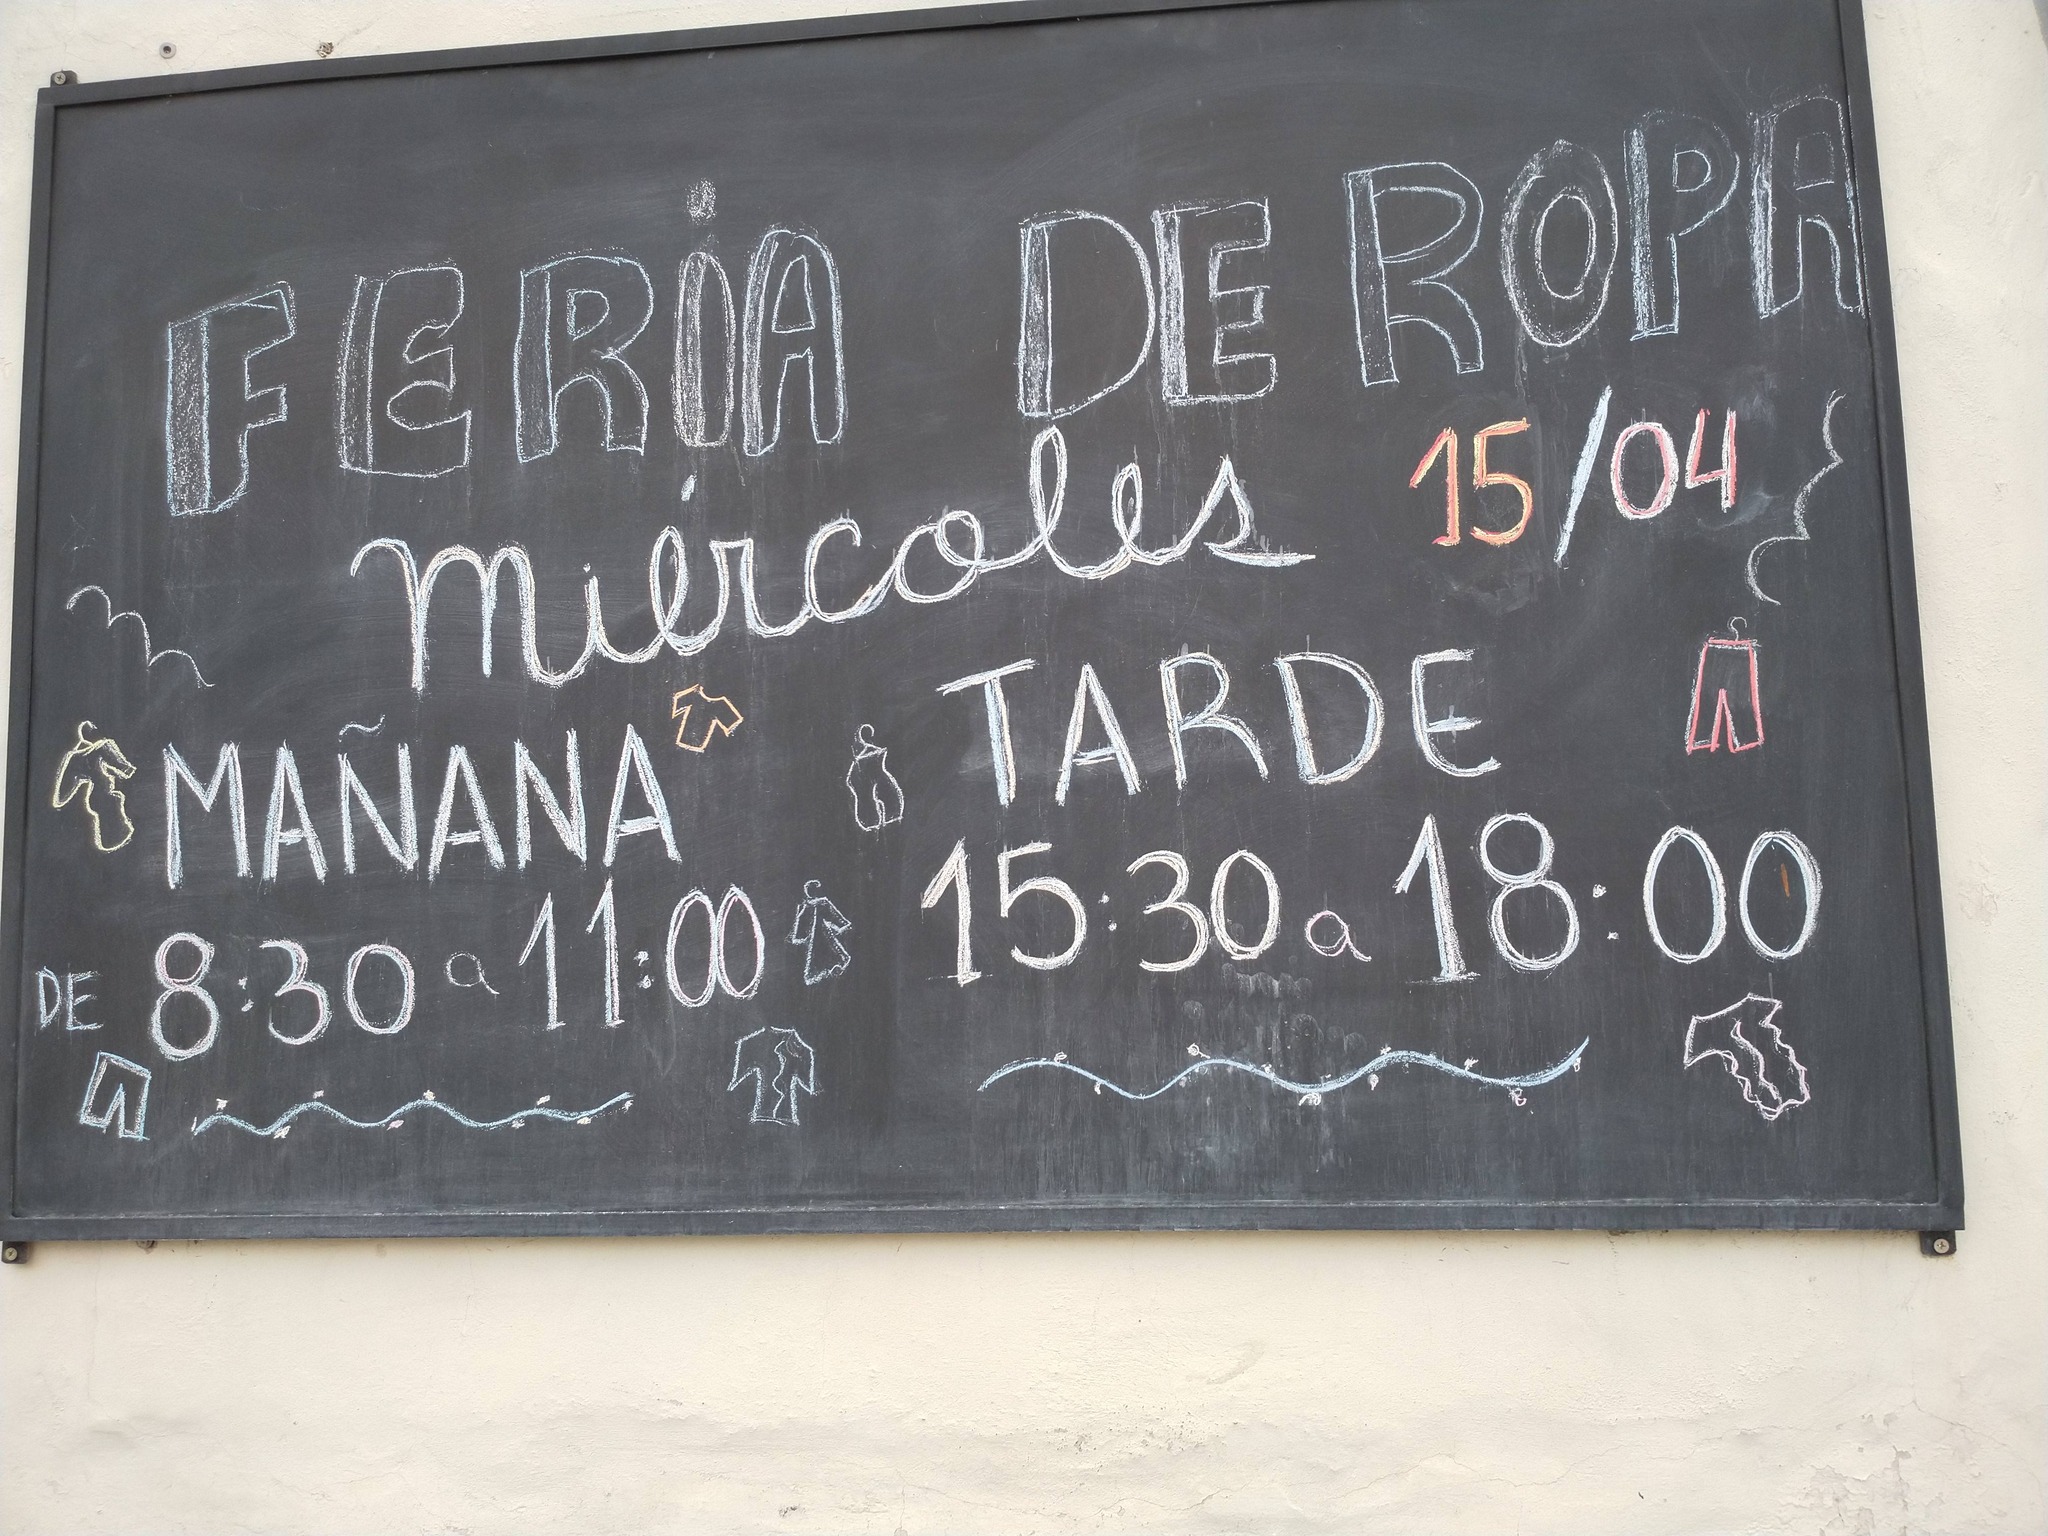 FERiA DE ROPA
miércoles 15/04
MAÑANA
DE 8:30 a 11:00
TARDE
15:30 a 18:00